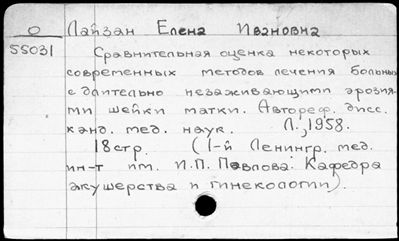 О Лайзан Елена Ивановна
55031 Сравнительная оценка некоторых
современных методов лечения больных
с длительно незаживающими эрозия-
ми шейки матки. Автореф. дисс.
канд. мед. наук. Л., 1958.
18 стр. (1-й Ленингр. мед.
ин-т им. И.П. Павлова. Кафедра
акушерства и гинекологии).